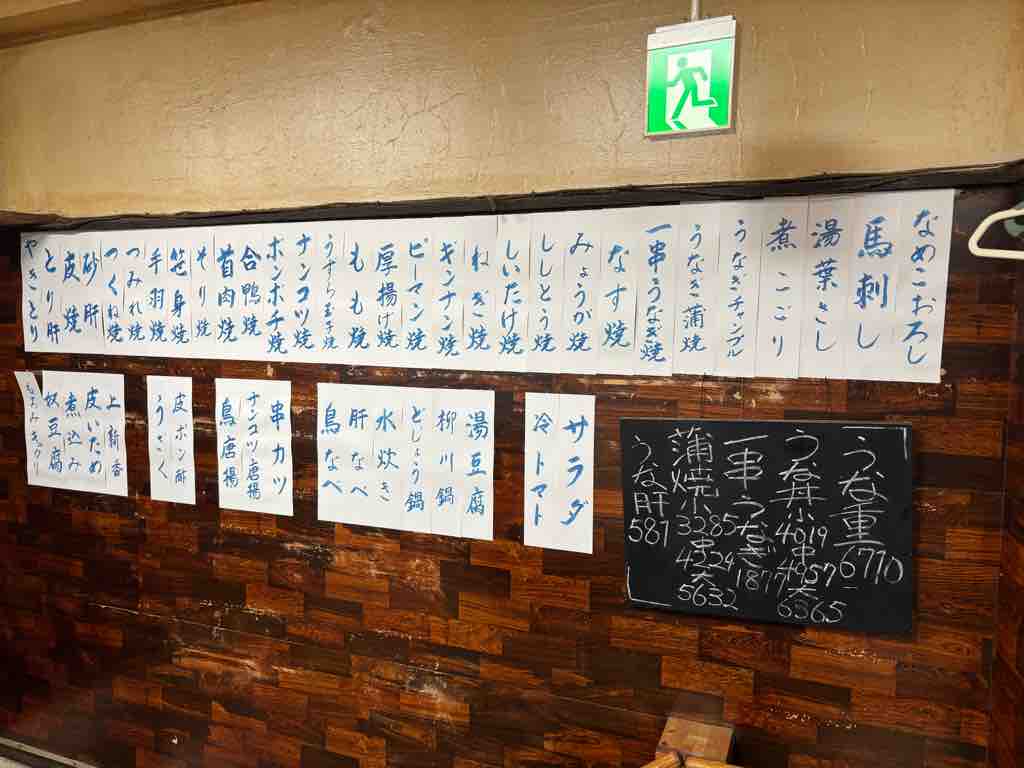 なめこおろし
馬刺し
湯葉さし
煮こごり
うなぎチャンプル
うなぎ蒲焼
一串うなぎ焼
なす焼
みょうが焼
ししとう焼
しいたけ焼
ねぎ焼
ギンナン焼
ピーマン焼
厚揚げ焼
もも焼
うずら玉子焼
ナンコツ焼
ボンボチ焼
合鴨焼
首肉焼
そり焼
笹身焼
手羽焼
つみれ焼
つくね焼
砂肝
皮焼
とり肝
やきとり
サラダ
冷トマト
湯豆腐
柳川鍋
どじょう鍋
水炊き
肝なべ
鳥なべ
串カツ
ナンコツ唐揚
鳥唐揚
皮ポン酢
うざく
上新香
皮いため
煮込み
奴豆腐
もろみキウリ
うな重6770
うな丼小4019中4957大6365
一串うなぎ1877
蒲焼小3285中4224大5632
うな肝587